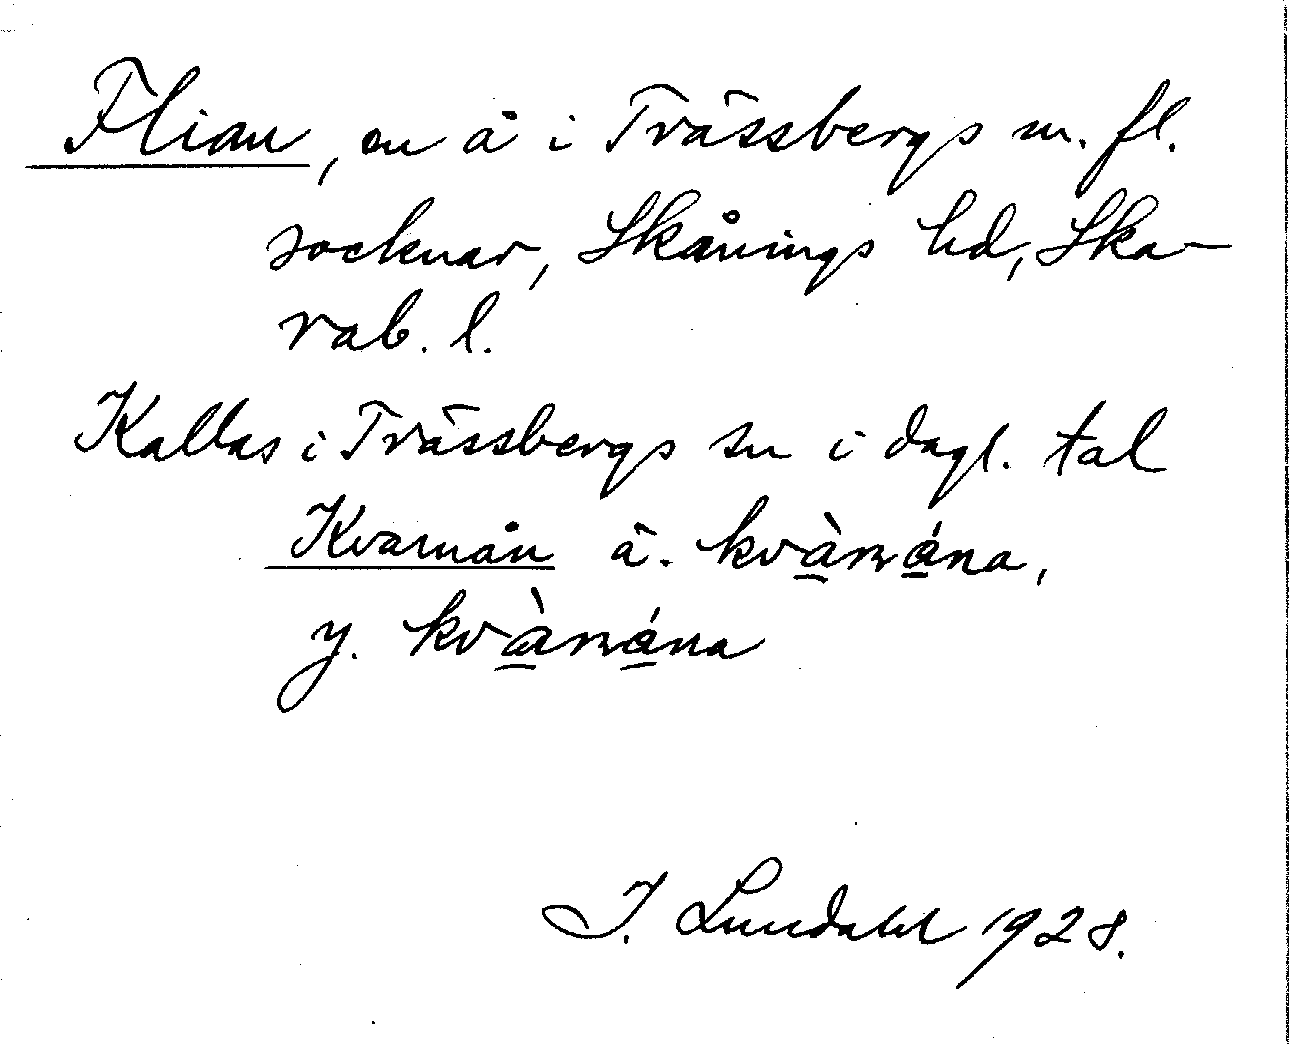 Flian, en å i Trässbergs m. fl.
socknar, Skånings hd, Ska-
rab. l.
Kallas i Trässbergs sn i dagl. tal
Kvarnån ä. kvà̱ɴá̱na,
y. kvà̱ɴá̱na
I. Lundahl 1928.